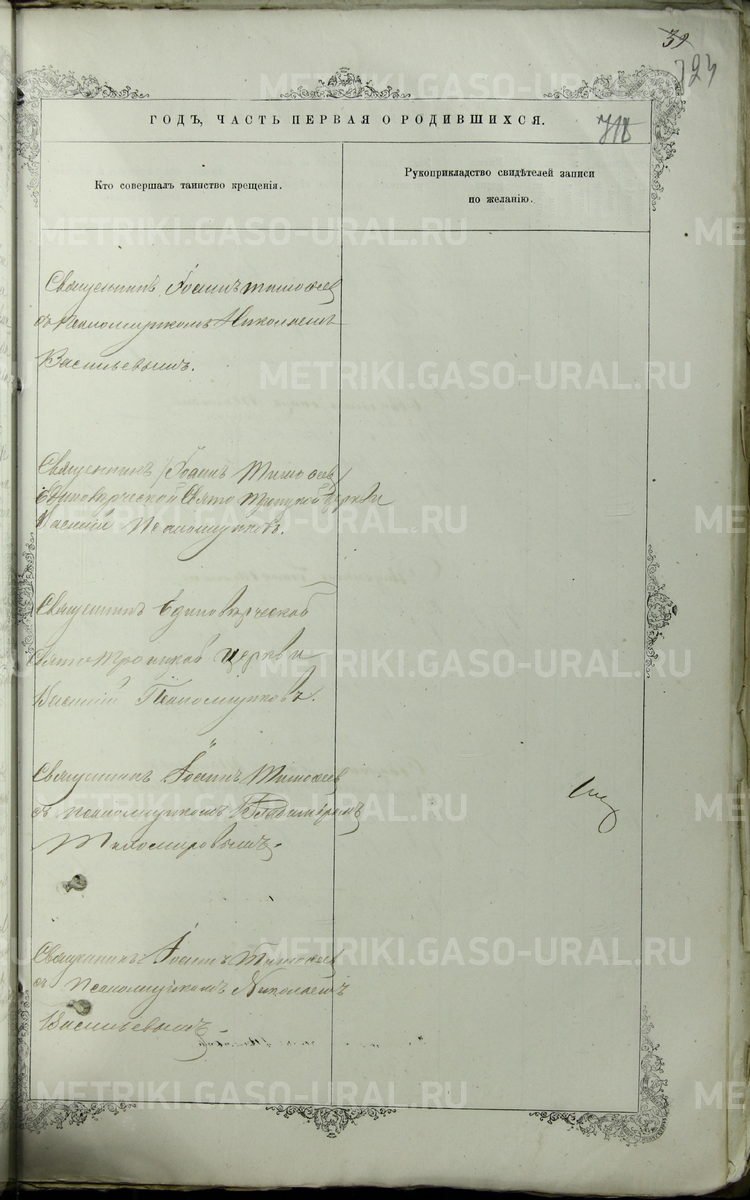 39
723
ГОДЪ, ЧАСТЬ ПЕРВАЯ О РОДИВШИХСЯ.
Кто совершалъ таинство крещенія.
Рукоприкладство свидѣтелей записи
по желанію.
Священникъ Іоаннъ Тимофеев
съ псаломщикомъ Николаемъ
Васильевымъ.
Священникъ Іоаннъ Тимофеев
Единоверческой Свято Троицкой церкви
Василій Псаломщиковъ.
Священникъ Единоверческой
Свято Троицкой церкви
Василій Псаломщиковъ.
Священникъ Іоаннъ Тимофеев
съ псаломщикомъ Владимиромъ
Тихомировымъ.
Священникъ Іоаннъ Тимофеев
съ псаломщикомъ Николаемъ
Васильевымъ.
METRIKI.GASO-URAL.RU